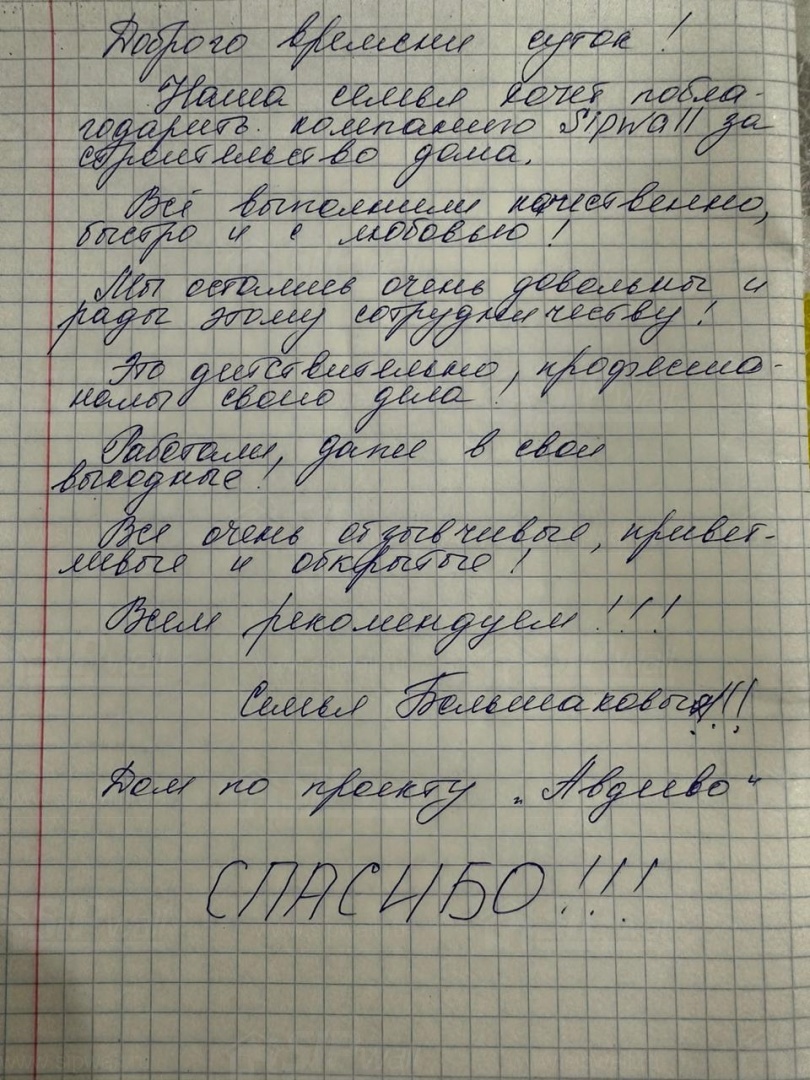 Доброго времени суток!
Наша семья хочет побла-
годарить компанию Sipwall за
строительство дома.
Всё выполнили качественно,
быстро и с любовью!
Мы остались очень довольны и
рады этому сотрудничеству!
Это дитствительно, профессио-
налы своего дела!
Работали, даже в свои
выходные!
Все очень отзывчивые, привет-
ливые и открытые!
Всем рекомендуем!!!
Семья Большаковых!!!
Дом по проекту „Авдеево“
СПАСИБО!!!